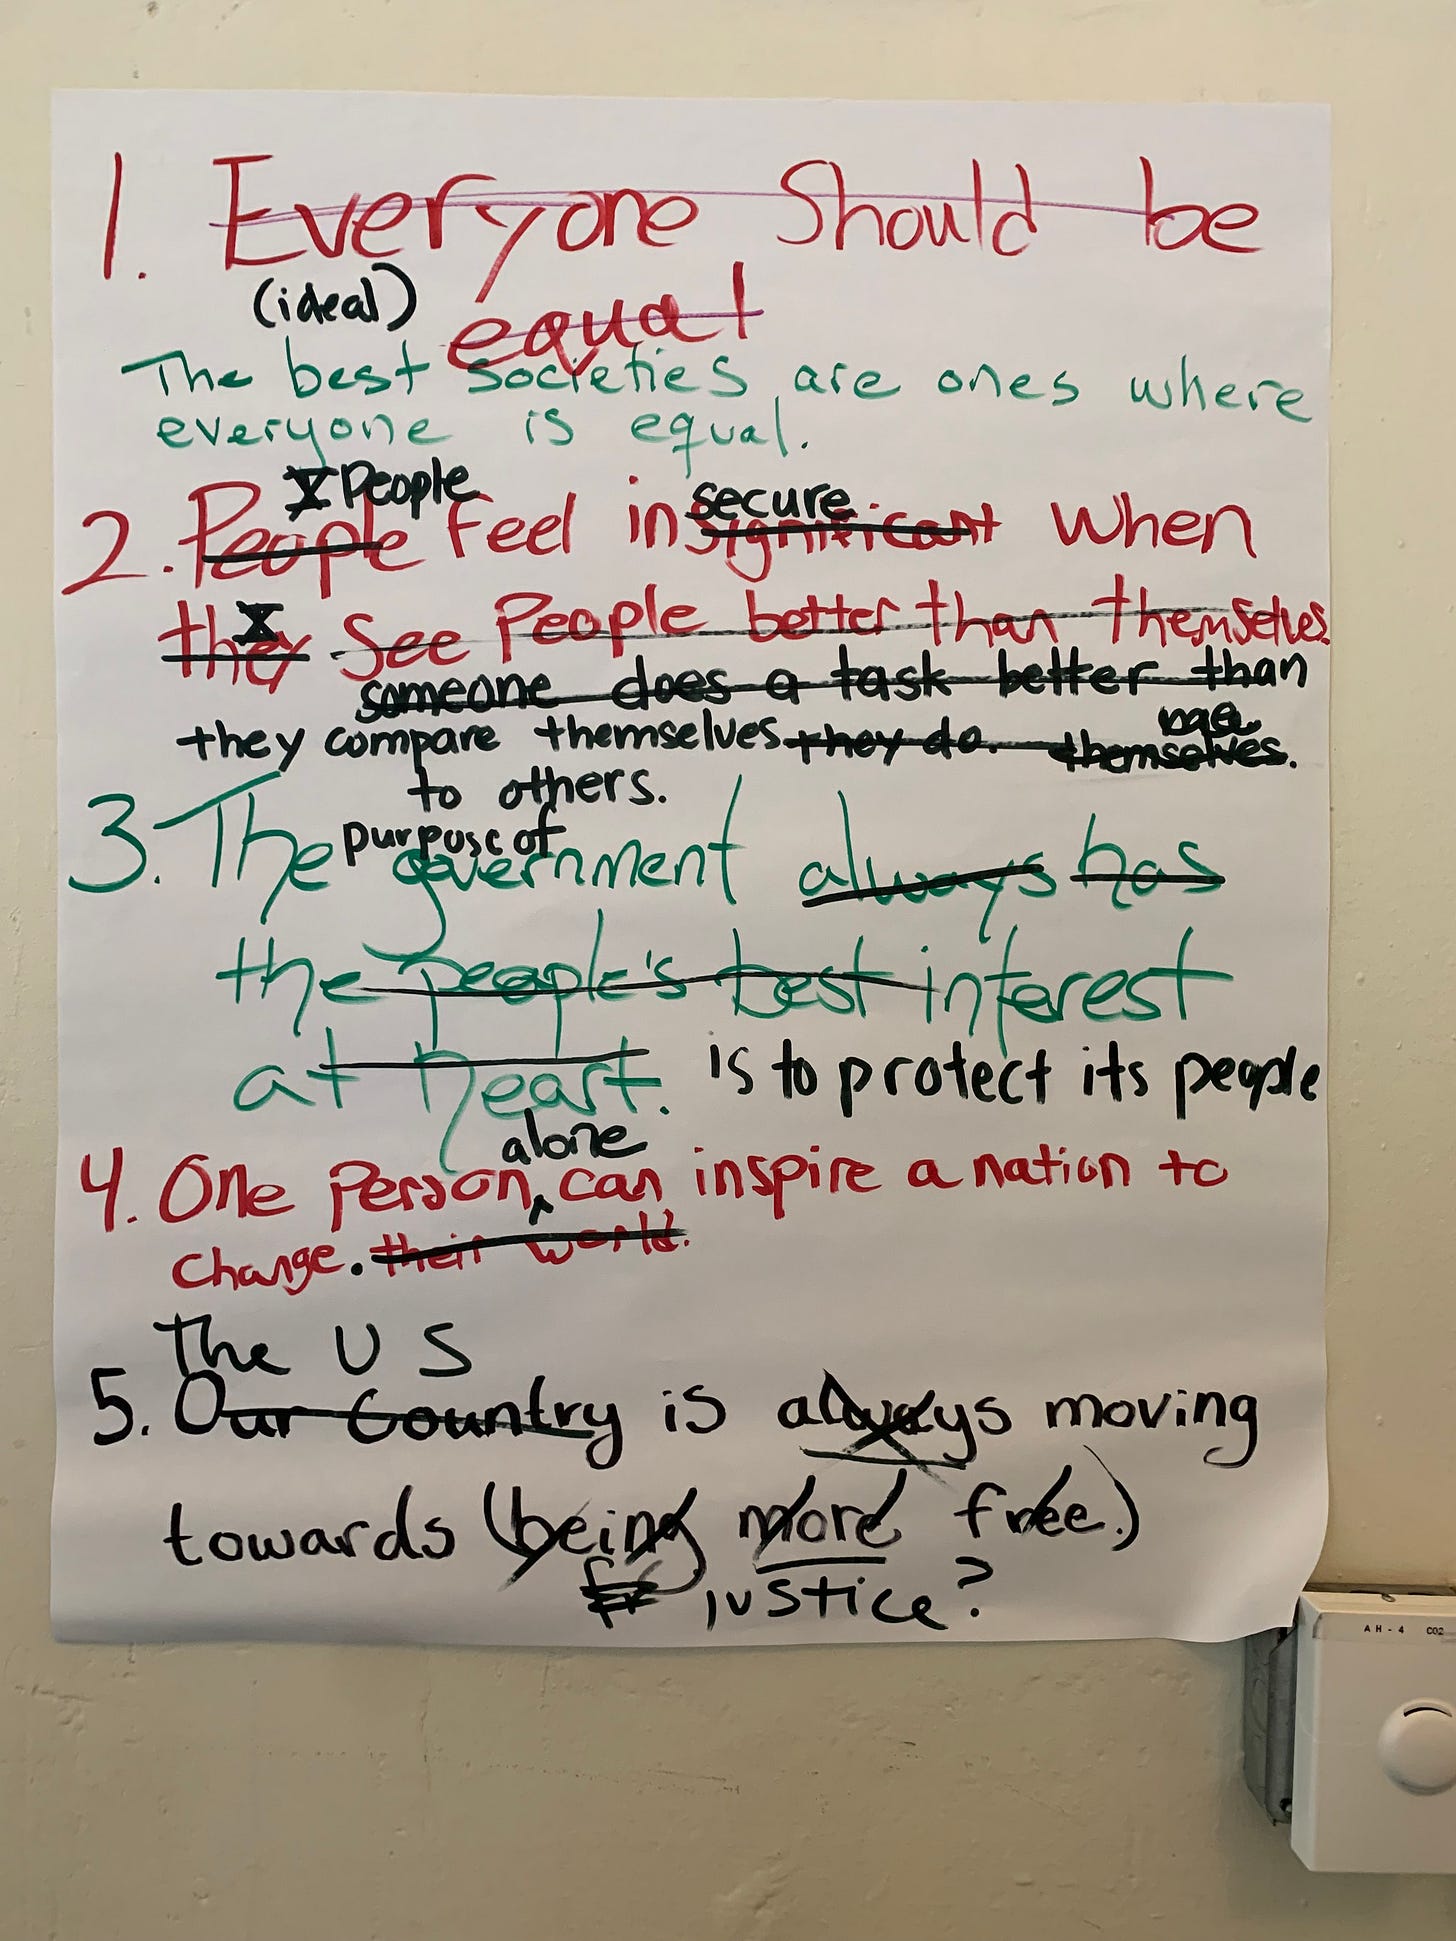 1. Everyone Should be
(ideal) equal
The best societies are ones where
everyone is equal.
X People secure
2. People feel insignificant when
X
they see People better than themselves.
someone does a task better than
me
they compare themselves they do. themselves.
to others.
purpose of
3. The government always has
the people's best interest
at heart. is to protect its people
alone
4. One person ^ can inspire a nation to
change. their world.
The US
5. Our Country is always moving
towards (being more free.)
justice?
AH-4 CO2